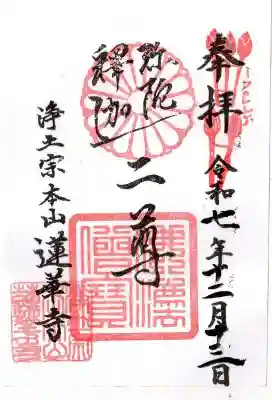 奉拝
令和七年十二月十三日
弥陀
釋迦
二尊
浄土宗本山蓮華寺